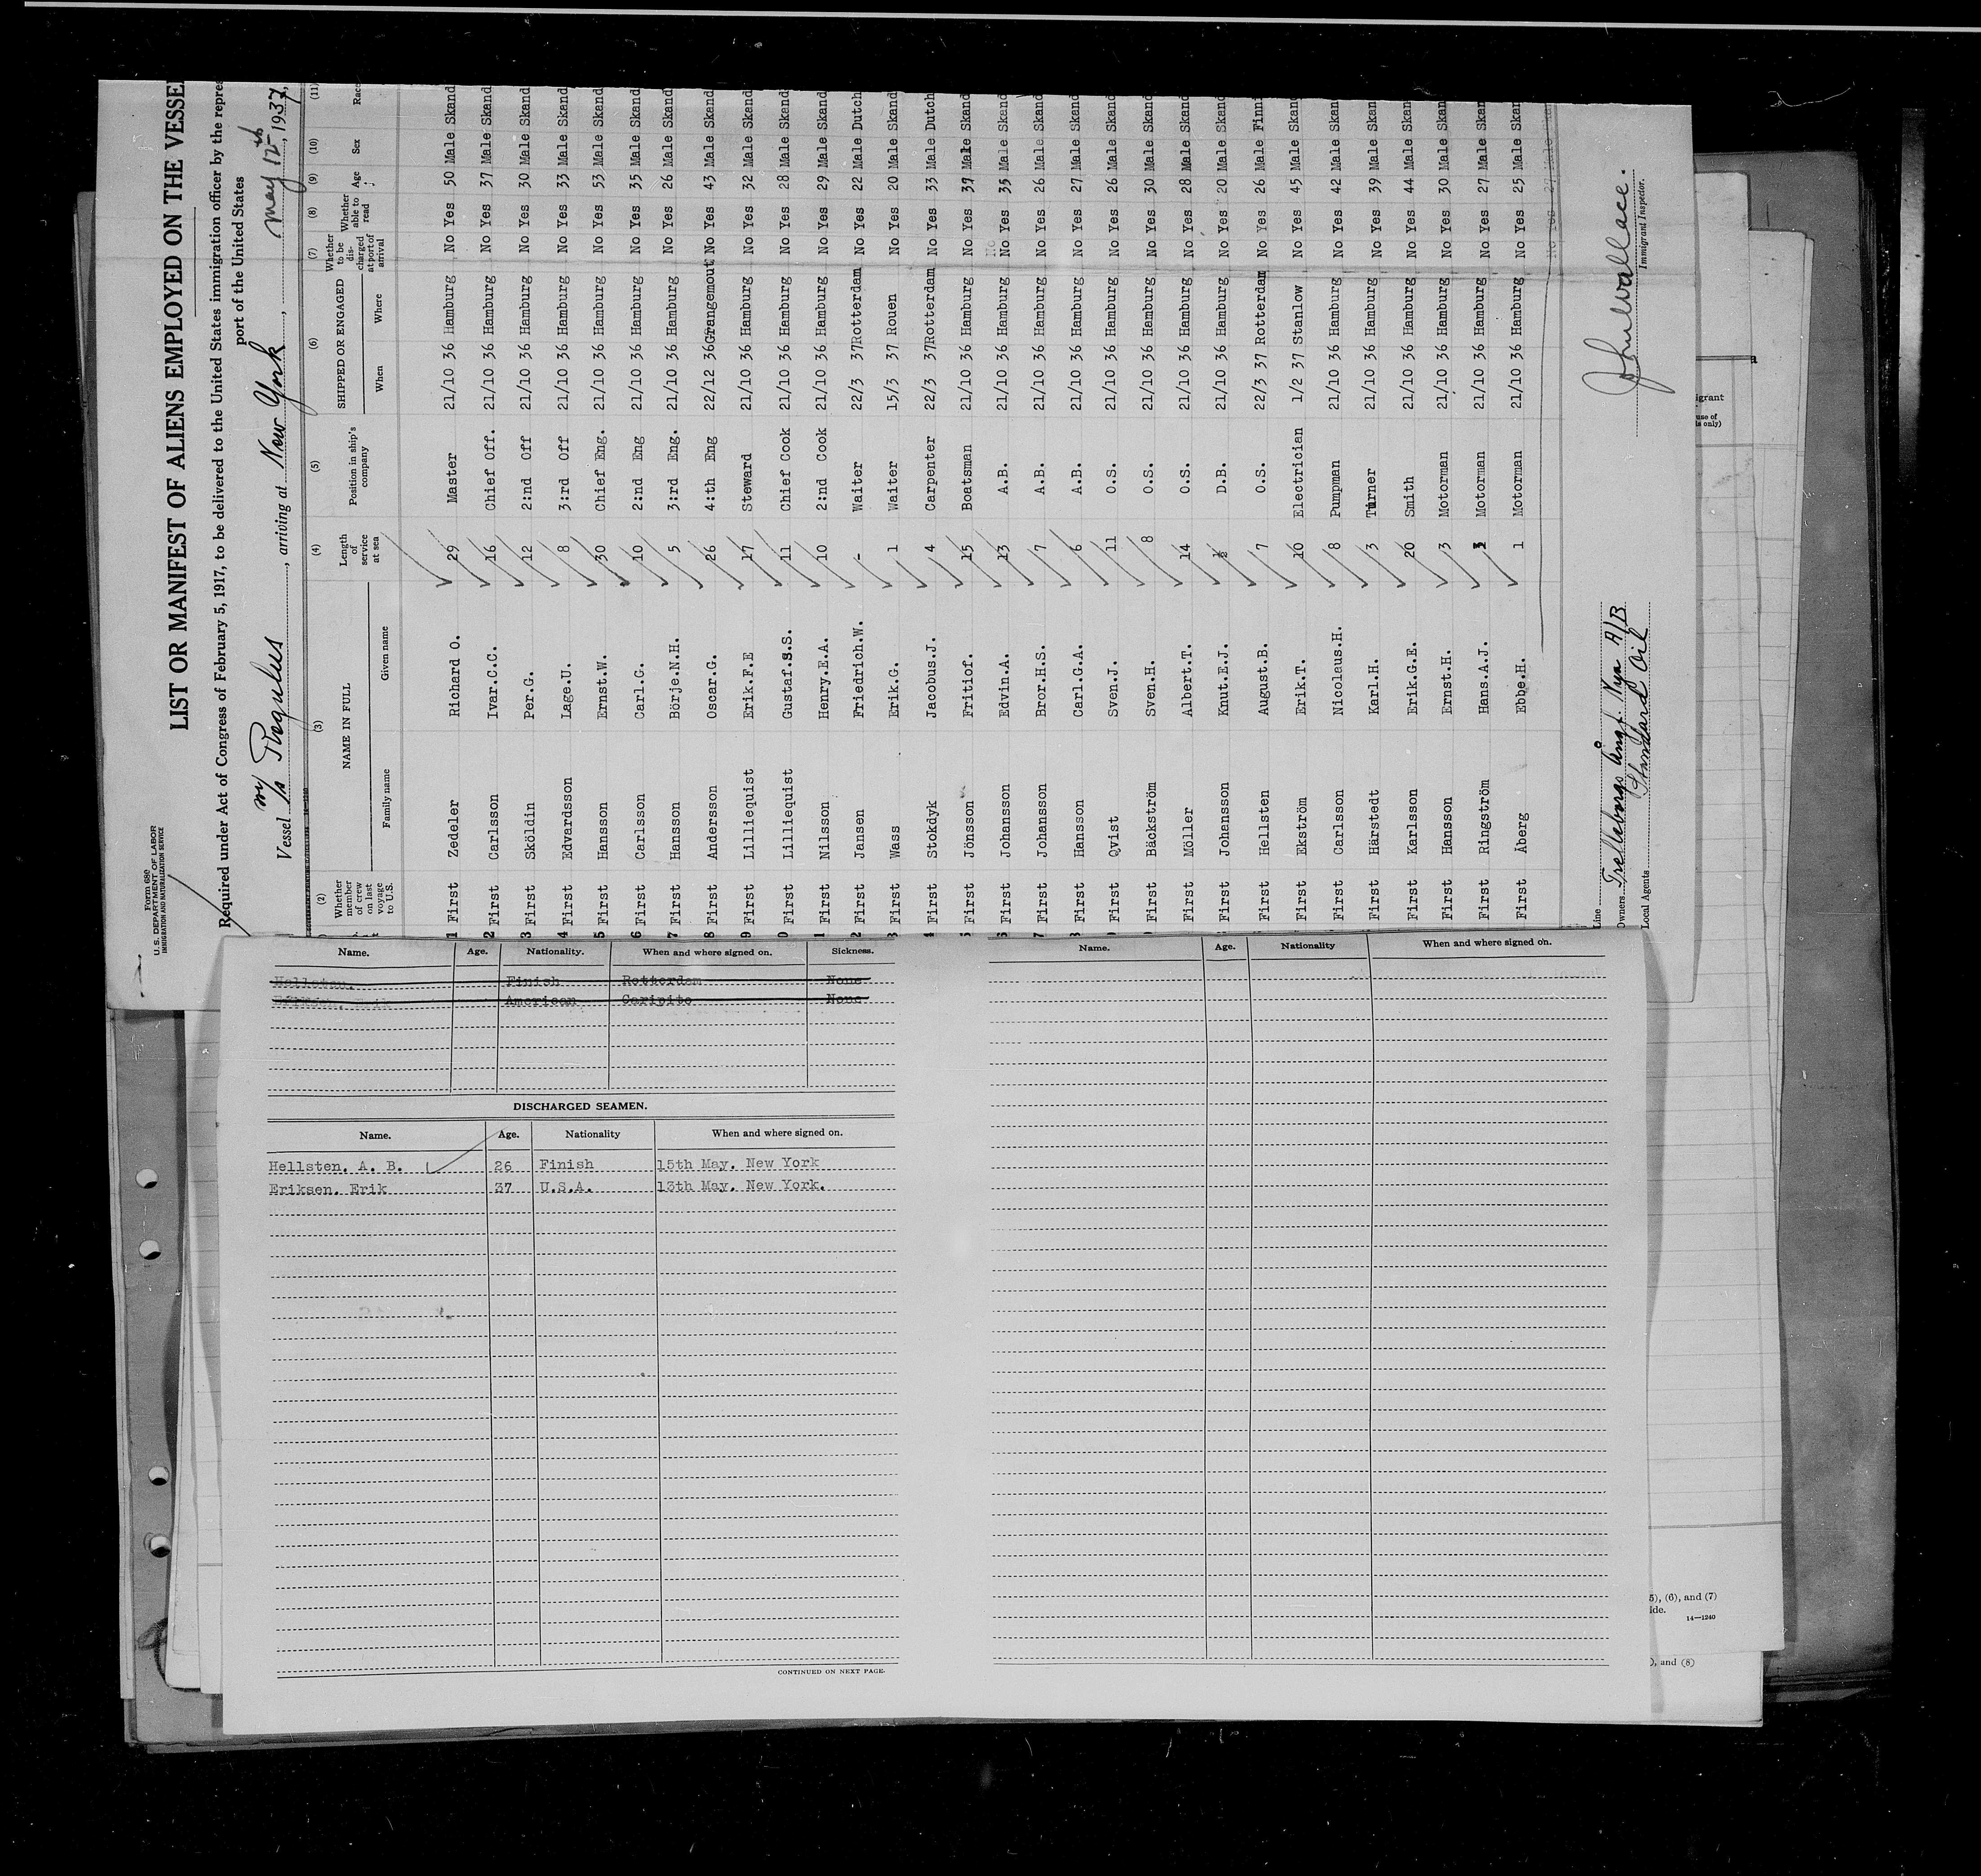 Form 680
U. S. DEPARTMENT OF LABOR
IMMIGRATION AND NATURALIZATION SERVICE
LIST OR MANIFEST OF ALIENS EMPLOYED ON THE VESSEL
Required under Act of Congress of February 5, 1917, to be delivered to the United States immigration officer by the repres
port of the United States
Vessel M/S Regulus, arriving at New York, May 12th, 1937,
(2) (3) (4) (5) (6) (7) (8) (9) (10) (11)
Whether member of crew on last voyage to U.S. NAME IN FULL Length of service at sea Position in ship's company SHIPPED OR ENGAGED Whether to be discharged at port of arrival Whether able to read Age Sex Race
Family name Given name When Where
1 First Zedeler Richard O. 29 Master 21/10 36 Hamburg No Yes 50 Male Skand
2 First Carlsson Ivar.C.C. 16 Chief Off. 21/10 36 Hamburg No Yes 37 Male Skand
3 First Sköldin Per.G. 12 2:nd Off 21/10 36 Hamburg No Yes 30 Male Skand
4 First Edvardsson Lage.U. 8 3:rd Off 21/10 36 Hamburg No Yes 33 Male Skand
5 First Hansson Ernst.W. 30 Chief Eng. 21/10 36 Hamburg No Yes 53 Male Skand
6 First Carlsson Carl.G. 10 2:nd Eng 21/10 36 Hamburg No Yes 35 Male Skand
7 First Hansson Börje.N.H. 5 3:rd Eng. 21/10 36 Hamburg No Yes 26 Male Skand
8 First Andersson Oscar.G. 26 4:th Eng 22/12 36 Grangemout No Yes 43 Male Skand
9 First Lilliequist Erik.F.E 17 Steward 21/10 36 Hamburg No Yes 32 Male Skand
0 First Lilliequist Gustaf.S.S. 11 Chief Cook 21/10 36 Hamburg No Yes 28 Male Skand
1 First Nilsson Henry.E.A. 10 2:nd Cook 21/10 36 Hamburg No Yes 29 Male Skand
2 First Jansen Friedrich.W. - Waiter 22/3 37 Rotterdam No Yes 22 Male Dutch
3 First Wass Erik.G. 1 Waiter 15/3 37 Rouen No Yes 20 Male Skand
4 First Stokdyk Jacobus.J. 4 Carpenter 22/3 37 Rotterdam No Yes 33 Male Dutch
5 First Jönsson Fritiof. 15 Boatsman 21/10 36 Hamburg No Yes 37 Male Skand
6 First Johansson Edvin.A. 13 A.B. 21/10 36 Hamburg No Yes 35 Male Skand
7 First Johansson Bror.H.S. 7 A.B. 21/10 36 Hamburg No Yes 26 Male Skand
8 First Hansson Carl.G.A. 6 A.B. 21/10 36 Hamburg No Yes 27 Male Skand
First Qvist Sven.J. 11 O.S. 21/10 36 Hamburg No Yes 26 Male Skand
First Bäckström Sven.H. 8 O.S. 21/10 36 Hamburg No Yes 30 Male Skand
First Möller Albert.T. 14 O.S. 21/10 36 Hamburg No Yes 28 Male Skand
First Johansson Knut.E.J. ½ D.B. 21/10 36 Hamburg No Yes 20 Male Skand
First Hellsten August.B. 7 O.S. 22/3 37 Rotterdam No Yes 26 Male Finni
First Ekström Erik.T. 10 Electrician 1/2 37 Stanlow No Yes 45 Male Skan
First Carlsson Nicolaus.H. 8 Pumpman 21/10 36 Hamburg No Yes 42 Male Skan
First Härstedt Karl.H. 3 Turner 21/10 36 Hamburg No Yes 39 Male Skan
First Karlsson Erik.G.E. 20 Smith 21/10 36 Hamburg No Yes 44 Male Skan
First Hansson Ernst.H. 3 Motorman 21/10 36 Hamburg No Yes 30 Male Skan
First Ringström Hans.A.J. Motorman 21/10 36 Hamburg No Yes 27 Male Skan
First Åberg Ebbe.H. 1 Motorman 21/10 36 Hamburg No Yes 25 Male Skan
Line
Owners Trelleborgs Ångf. Nya A/B
Local Agents Standard Oil
John Wallace.
Immigrant Inspector.
Name. Age. Nationality. When and where signed on. Sickness.
Hellsten. Finish Rotterdam None
Eriksen, Erik American Caripito None
DISCHARGED SEAMEN.
Name. Age. Nationality When and where signed on.
Hellsten, A. B. 26 Finish 15th May, New York
Eriksen, Erik 37 U.S.A. 13th May, New York.
CONTINUED ON NEXT PAGE.
Name. Age. Nationality When and where signed on.
igrant
use of
is only)
5), (6), and (7)
ide.
14—1240
), and (8)